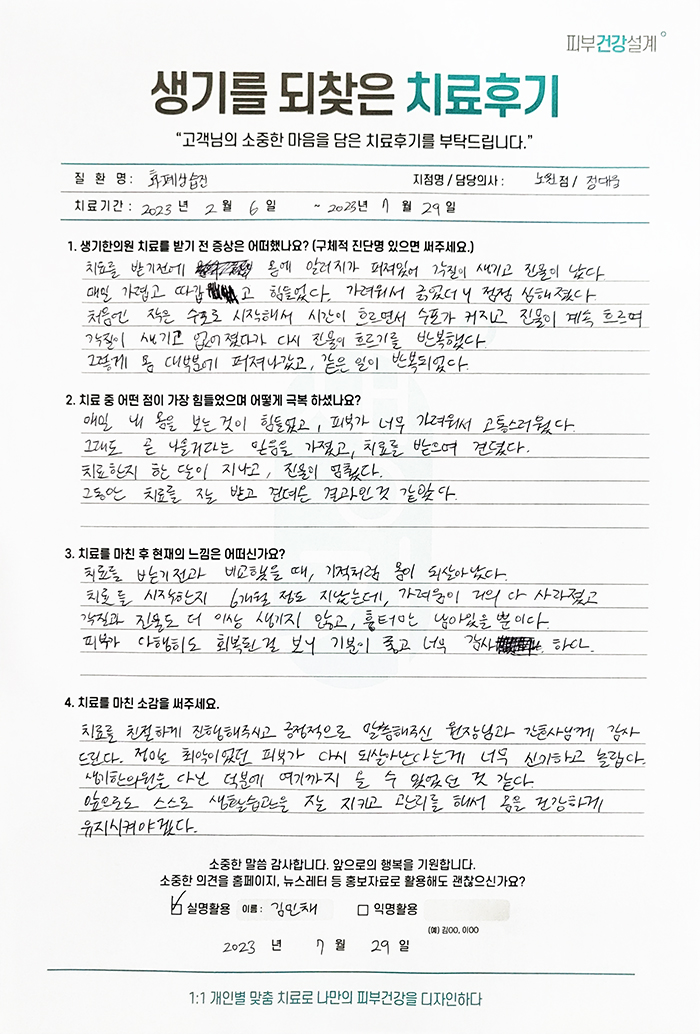 피부건강설계
생기를 되찾은 치료후기
“고객님의 소중한 마음을 담은 치료후기를 부탁드립니다.”
질 환 명 : 화폐상습진 지점명 / 담당의사 : 노원점 / 정대웅
치료기간 : 2023 년 2 월 6 일 ~ 2023년 7 월 29 일
1. 생기한의원 치료를 받기 전 증상은 어떠했나요? (구체적 진단명 있으면 써주세요.)
치료를 받기전에 몸에 알러지가 퍼져있어 각질이 생기고 진물이 났다.
매일 가렵고 따갑고 힘들었다. 가려워서 긁었더니 점점 심해졌다.
처음엔 작은 수포로 시작해서 시간이 흐르면서 수포가 커지고 진물이 계속 흐르며
각질이 생기고 없어졌다가 다시 진물이 흐르기를 반복했다.
그렇게 몸 대부분에 퍼져나갔고, 같은 일이 반복되었다.
2. 치료 중 어떤 점이 가장 힘들었으며 어떻게 극복 하셨나요?
매일 내 몸을 보는 것이 힘들었고, 피부가 너무 가려워서 고통스러웠다.
그래도 곧 나을거라는 믿음을 가졌고, 치료를 받으며 견뎠다.
치료한지 한 달이 지나고, 진물이 멈췄다.
그동안 치료를 잘 받고 견뎌온 결과인것 같았다.
3. 치료를 마친 후 현재의 느낌은 어떠신가요?
치료를 받기전과 비교했을 때, 기적처럼 몸이 되살아났다.
치료를 시작한지 6개월 정도 지났는데, 가려움이 거의 다 사라졌고
각질과 진물도 더 이상 생기지 않고, 흉터만 남아있을 뿐이다.
피부가 다행히도 회복된걸 보니 기분이 좋고 너무 감사하다.
4. 치료를 마친 소감을 써주세요.
치료를 친절하게 진행해주시고 긍정적으로 말씀해주신 원장님과 간호사님께 감사
드린다. 정말 최악이었던 피부가 다시 되살아난다는게 너무 신기하고 놀랍다.
생기한의원을 다닌 덕분에 여기까지 올 수 있었던 것 같다.
앞으로도 스스로 생활습관을 잘 지키고 관리를 해서 몸을 건강하게
유지시켜야겠다.
소중한 말씀 감사합니다. 앞으로의 행복을 기원합니다.
소중한 의견을 홈페이지, 뉴스레터 등 홍보자료로 활용해도 괜찮으신가요?
실명활용 이름 : 김민채 익명활용
(예) 김OO, 이OO
2023 년 7 월 29 일
1:1 개인별 맞춤 치료로 나만의 피부건강을 디자인하다